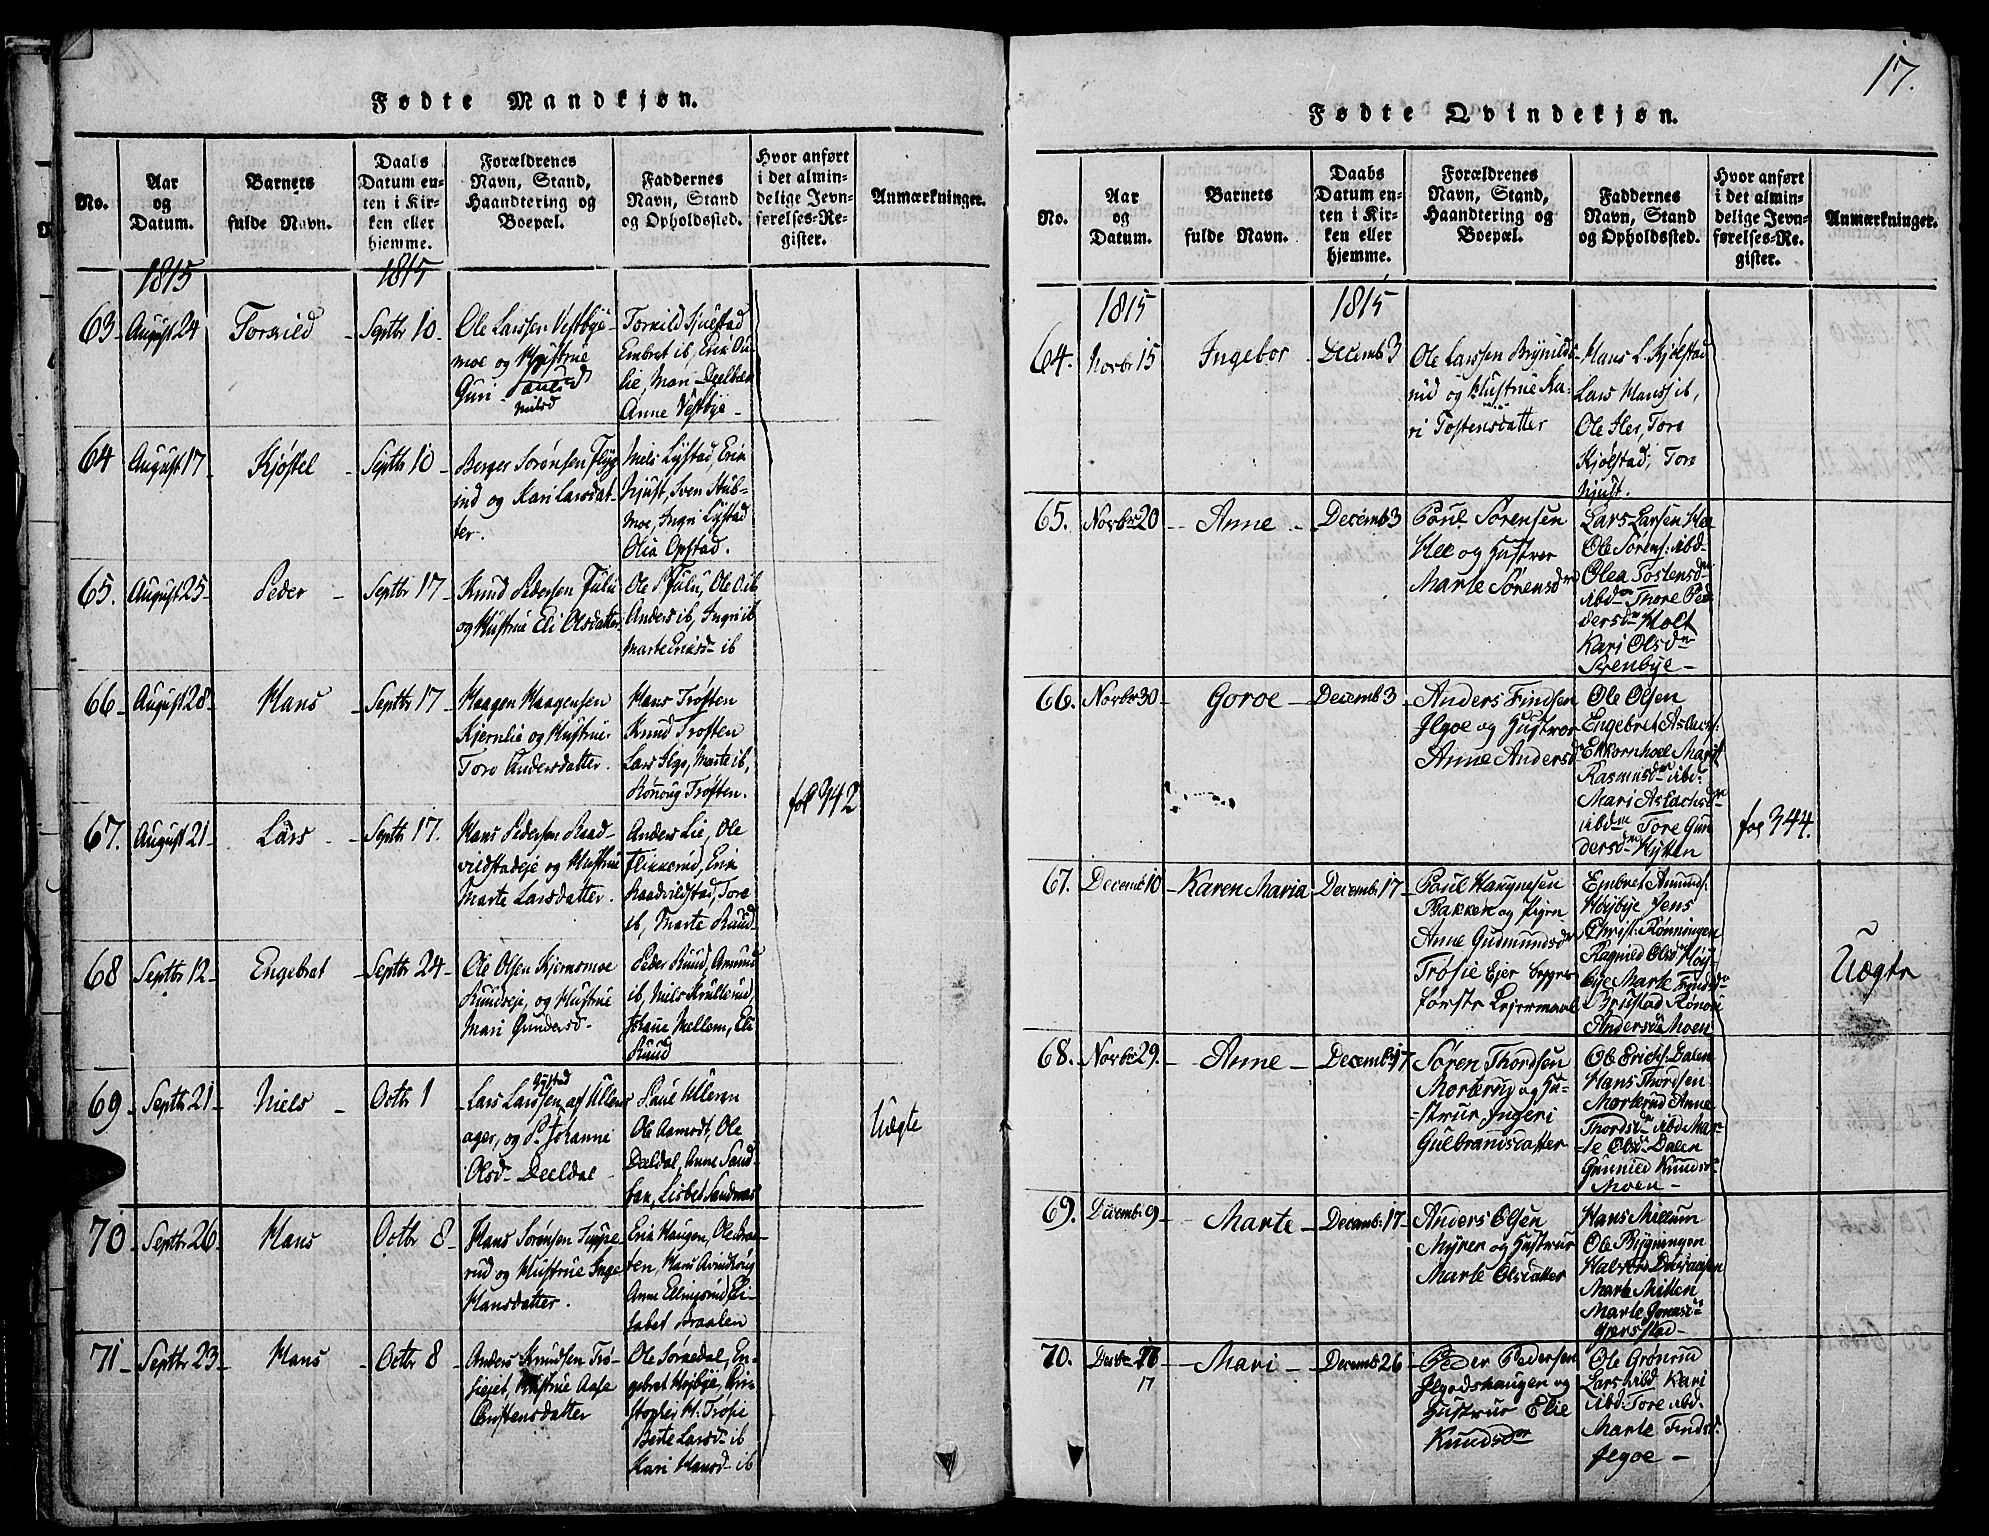 Fødte Mandkjøn.
No.
Aar
og
Datum.
Barnets
fulde Navn.
Daabs
Datum en-
ten i Kir-
ken eller
hjemme.
Forældrenes
Navn, Stand,
Haandtering og
Boepæl.
Faddernes
Navn, Stand
og Opholdssted.
Hvor anført
i det almin-
delige Jevn-
førelses-Re-
gister.
Anmærkninger.
1815
1815
63
August 24
Torkild
Septbr 10
Ole Larssen Vestbye-
moe og Hustrue
Guri
Nilsd
Torkild Sjulstad
Embret ib, Erik Ou-
lie, Mari
Anne Vestbye
64
August 17
Kjøstel
Septbr 10
Berger Sørensen Flyg-
ind og Kari Larsdat-
ter.
Niels Lystad, Erik
Njust, Sven Stub-
moe, Ingri Lystad
Olia Opstad.
65.
August 25
Peder
Septbr 17
Knud Pedersen Julu
og Hustrue Eli Olsdatter
Ole P. Julu, Ole O. ib
Anders ib, Ingri ib
Marte Eriksd ib
66
August 28
Hans
Septbr 17
Haagen Haagensen
Kjernlie og Hustrue
Toro Andersdatter.
Hans Trøften
Knud Trøften
Lars Ilgo, Marte ib,
Rønnoug Trøften.
67.
August 21
Lars
Septbr 17.
Hans Pedersen Raad-
vildstadeje og Hustrue
Marte Larsdatter.
Anders Lie, Ole
Flikkerud, Erik
Raadvildstad, Tore
ib, Marte Ruud
fol 342
68
Septbr 12
Engebret
Septbr 24
Ole Olsen Kjernsmoe
Ruudseje, og Hustrue
Mari Gundersd.
Peder Ruud, Ammund
ib, Niels Krullerud,
Johane Mellem, Eli
Ruud
69
Septbr 21
Niels
Octbr 1
Lars Larssen af Ullern
ager, og P. Johanne
Olsd Deeldal
Paul Ulleren
Ole Aamodt, Ole
Dældal, Anne Sand-
bak, Lisbet Sandness
Uægte
70
Septbr 26
Hans
Octbr 8
Hans Sørensen Tuppe-
rud og Hustrue Inge
Hansdatter.
Erik Haugen, Ole Braa-
ten, Hans
Anne Ellingsrud, Eli-
sabet Braaten
71
Septbr 23
Hans
Octbr 8
Anders Knudsen Trø-
siejet, Hustrue Aase
Christensdatter
Ole Soraedal, En-
gebret Højbye, Kri-
stopher H. Trøsie
Berte Larsd ib
Kari Hansd ib
17.
Fødte Qvindekjøn.
No.
Aar
og
Datum.
Barnets
fulde Navn.
Daabs
Datum en-
ten i Kir-
ken eller
hjemme.
Forældrenes
Navn, Stand,
Haandtering og
Boepæl.
Faddernes
Navn, Stand
og Opholdssted.
Hvor anført
i det almin-
delige Jevn-
førelses-Re-
gister.
Anmærkninger.
1815
1815
64.
Novbr 15
Ingebor
Decemb 3
Ole Larssen Brynilds-
rud og Hustrue Ka-
ri Tostensdatter
Hans L. Kjølstad
Lars Hanss ib,
Ole Her, Toro
Kjølstad, Toro
Njust.
65.
Novbr 20
Anne
Decemb 3
Poul Sørensen
Hee og Hustrue
Marte Sørensd
Lars Larsen Hee
Ole Sørens: ibd
Olea Tostensd
ibd Thore Pe-
dersd Holt
Kari Olsd
Svenbye
66.
Novbr 30
Goroe
Decemb 3
Anders Findsen
Ilgoe og Hustroe
Anne Andersd
Ole Olsen
Engebret Aslach:
Ekkornhoel Marit
Rasmusd ibd
Mari Aslachsd
ibd Tore Gun-
dersd Hytten
fol 344.
67.
Decemb 10
Karen Maria
Decemb. 17
Poul Haagensen
Bakken og Pigen
Anne Gudmundsd
Trøsie Ejer begges
første Lejermaal
Embret Amunds:
Høybye Jens
Christ: Rønningen
Ragnild Olsd Høy-
bye Marte Findsd
Brustad Rønou
Andersd Moen
Uægte
68.
Novbr 29.
Anne
Decemb 17
Søren Thordsen
Morterud og Hu-
strue Ingeri
Gulbrandsdatter
Ole Erichs: Dalen
Hans Thordsen
Morterud Anne
Thordsd ibd Mar-
te Olsd Dalen
Gunnild Knudsd
Moen
69.
Decemb 9
Marte
Decemb. 17
Anders Olsen
Myren og Hustrue
Marte Olsdatter
Hans Millum
Ole Bygningen
Halvor
Marte Mitten
Marte
Gjersstad
70.
17
Mari
Decemb 26
Peder Pedersen
Ilgodshaugen og
Hustrue Elie
Knudsd
Ole Grønrud
Lars ibd Kari
ibd. Tore ibd.
Marte Findsd
Ilgoe